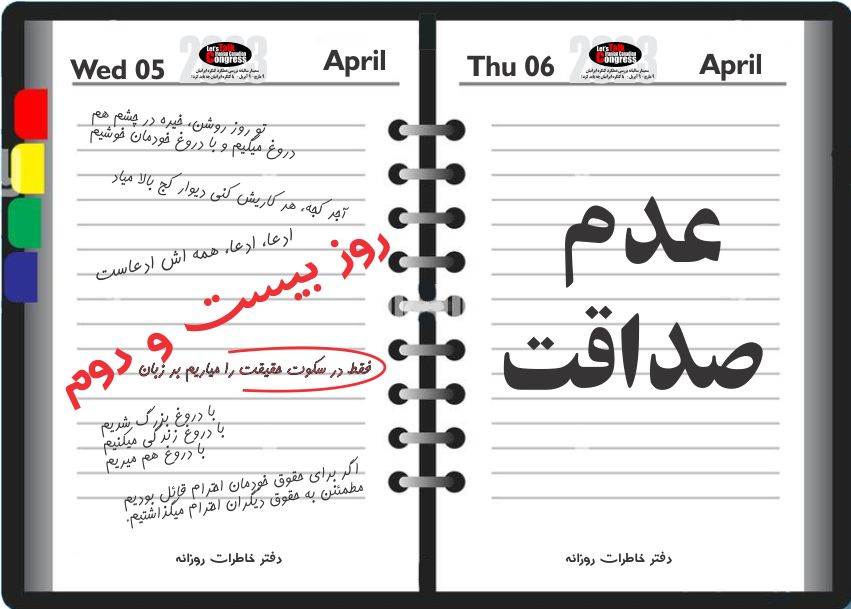 Wed 05
2023
Let's Talk
Iranian Canadian
Congress
April
تو روز روشن، خیره در چشم هم
دروغ میگیم و با دروغ خودمان خوشیم
آجر کجه، هر کاریش کنی دیوار کج بالا میاد
ادعا، ادعا، همه اش ادعاست
روز بیست و دوم
فقط در سکوت حقیقت را میاریم بر زبان
با دروغ بزرگ شدیم
با دروغ زندگی میکنیم
با دروغ هم میریم
اگر برای حقوق خودمان احترام قائل بودیم
مطمئنن به حقوق دیگران احترام میگذاشتیم.
دفتر خاطرات روزانه
Thu 06
2023
Let's Talk
Iranian Canadian
Congress
April
عدم
صداقت
دفتر خاطرات روزانه